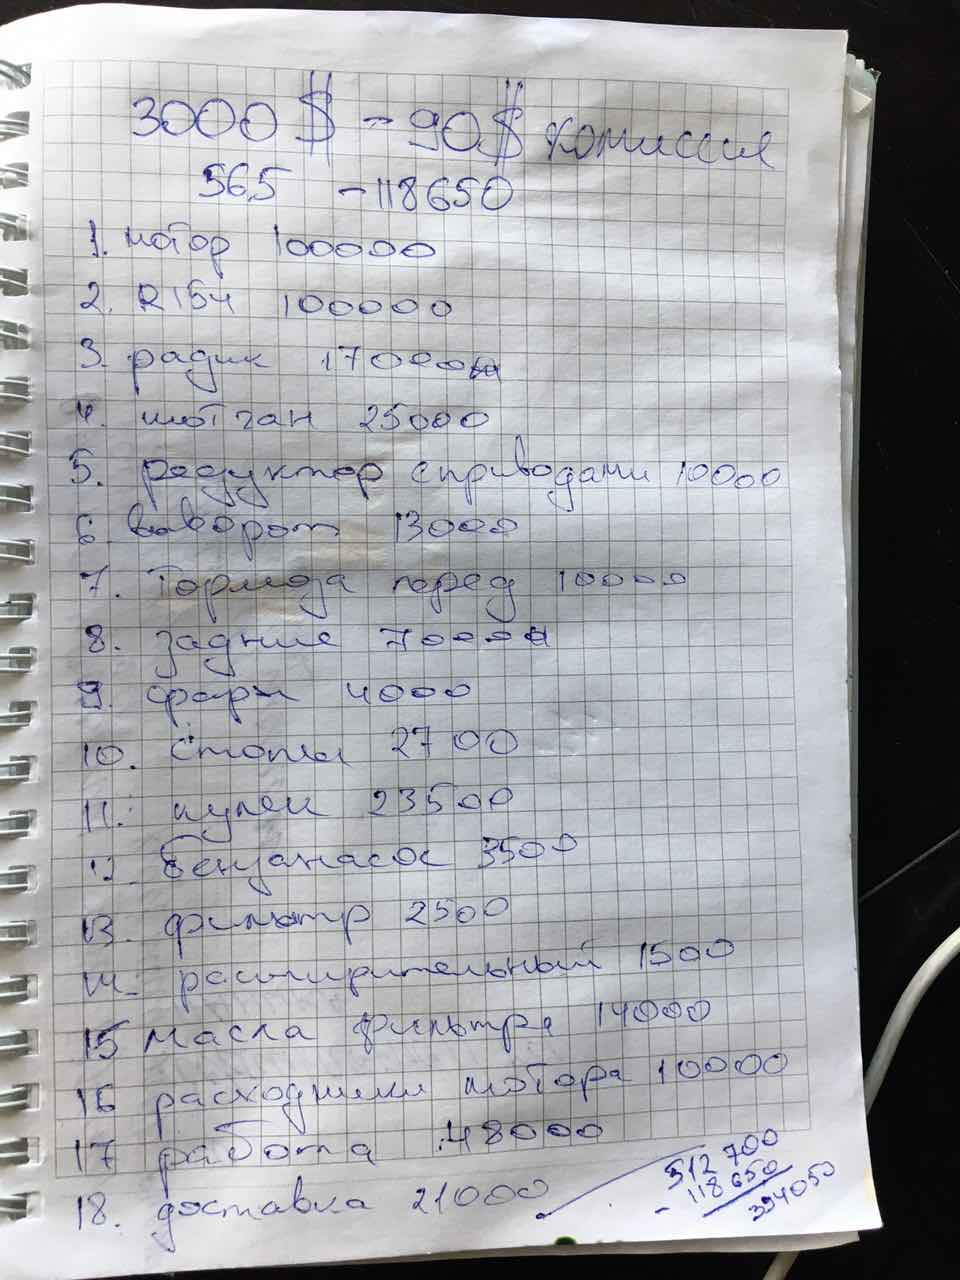 3000 $ - 90 $ комиссия
56.5 - 118650
1. мотор 100000
2. R154 100000
3. радик 17000
4. мотган 25000
5. редуктор с приводами 10000
6. выворот 13000
7. Тормоза перед 10000
8. задние 7000
9. фары 4000
10. Стопы 2700
11. кулек 23500
12 бензанасос 3500
13. фильтр 2500
14. расширительный 1500
15 Масла фильтра 14000
16 расходники мотора 10000
17 работа 48000
18. доставка 21000
512 700
- 118 650
394050